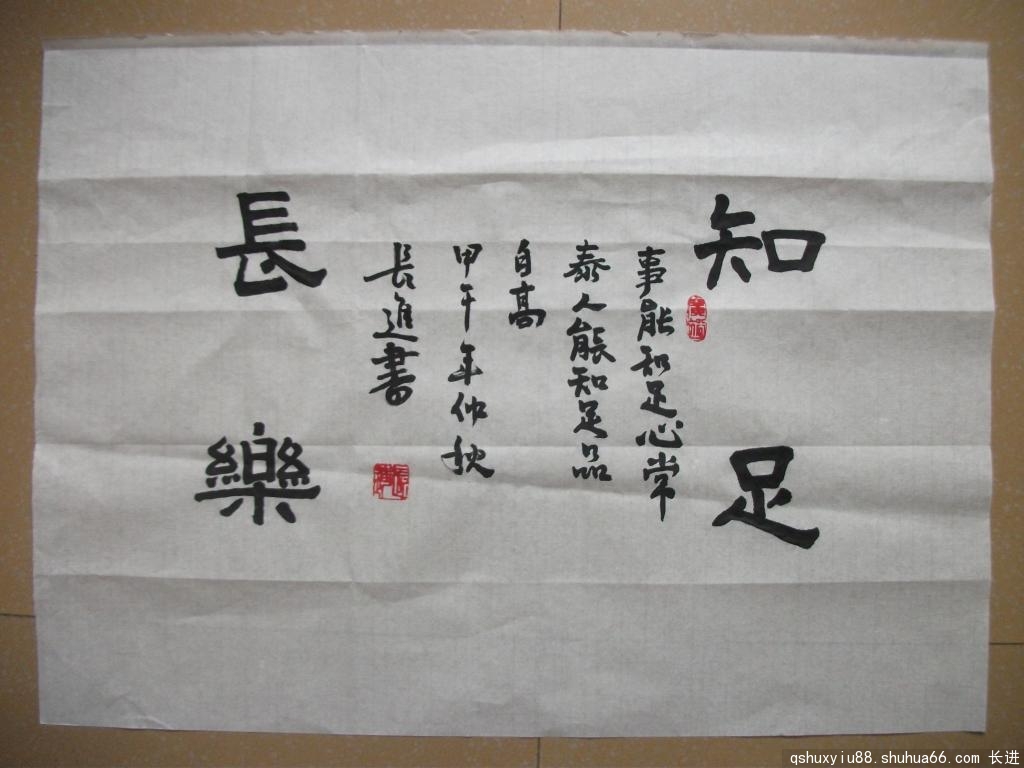 知足
事能知足心常
泰人能知足品
自高
甲午年仲秋
長進書
長樂
qshuxyiu88.shuhua66.com 长进